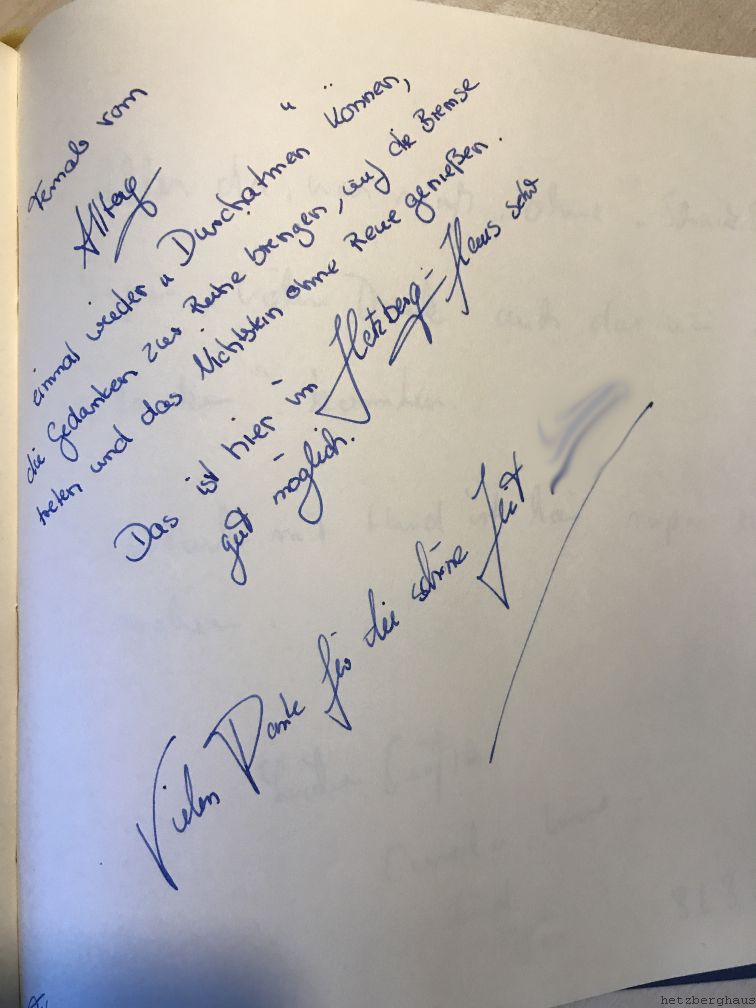 Fernab vom
Alltag
einmal wieder "Durchatmen" können,
die Gedanken zur Ruhe bringen, auf die Bremse
treten und das Nichtstun ohne Reue genießen.
Das ist hier im Hetzberg-Haus sehr
gut möglich.
Vielen Dank für die schöne Zeit
hetzberghaus